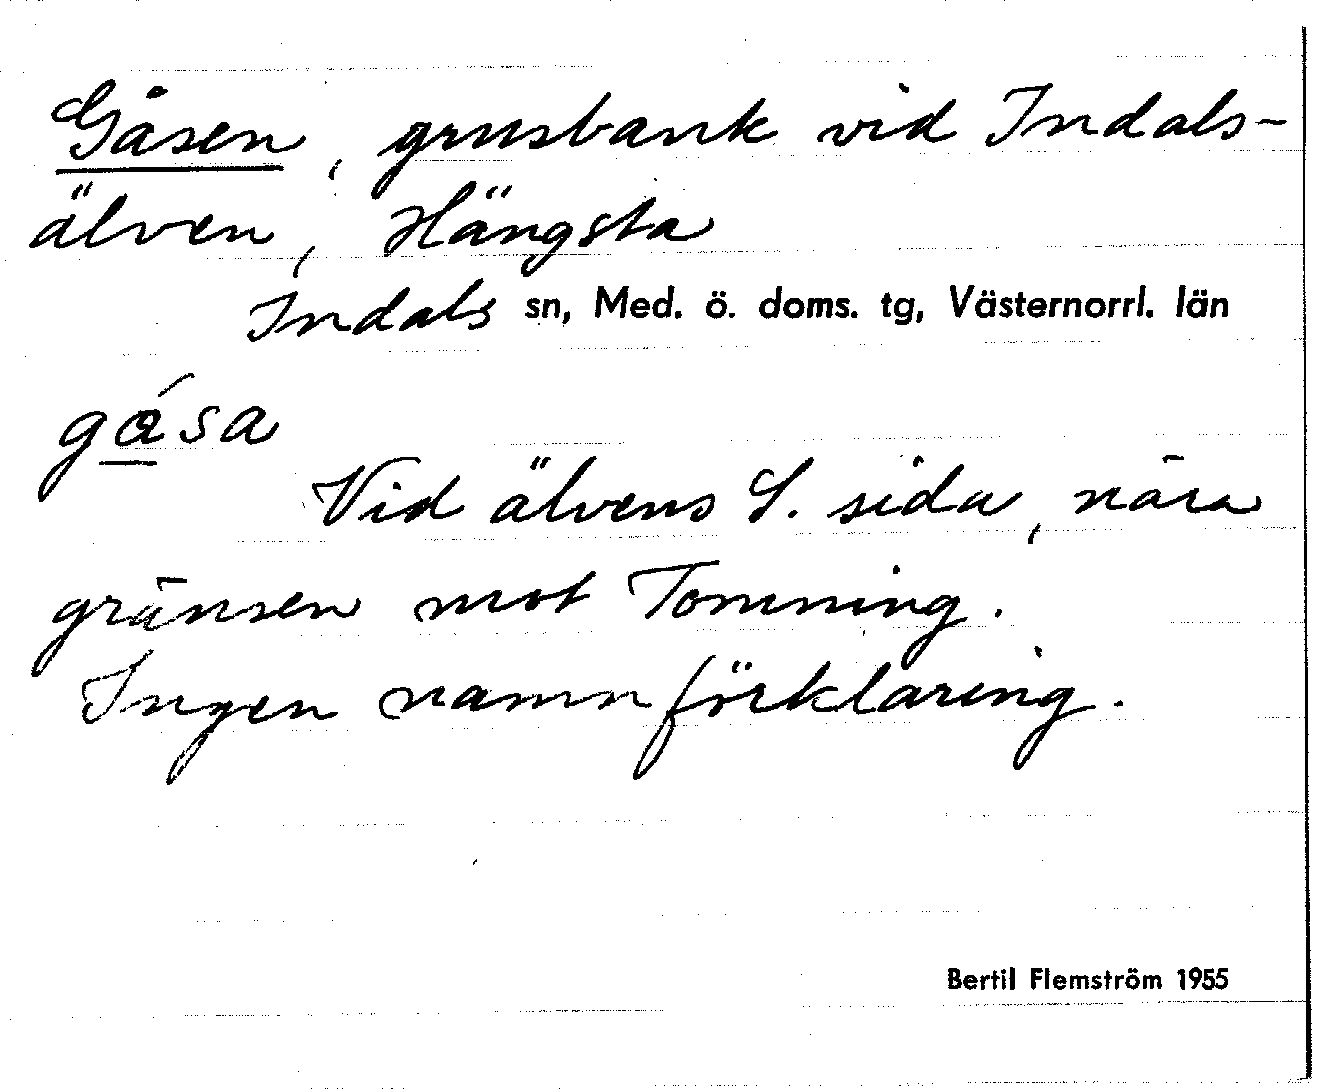 Gåsen, grusbank vid Indals-
älven, Hängsta
Indals sn, Med. ö. doms. tg, Västernorrl. län
gása
Vid älvens S. sida, nära
gränsen mot Tomming.
Ingen namnförklaring.
Bertil Flemström 1955